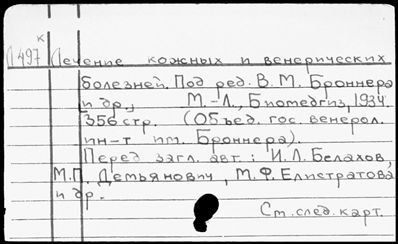 к
П497 Лечение кожных и венерических
болезней. Под ред. В. М. Броннера
и др., М.-Л., Биомедгиз, 1934.
356 стр. (Объед. гос. венерол.
ин-т им. Броннера).
Перед загл. авт.: И.Л. Белахов,
М.П. Демьянович, М.Ф. Елистратова
и др.
См. след. карт.